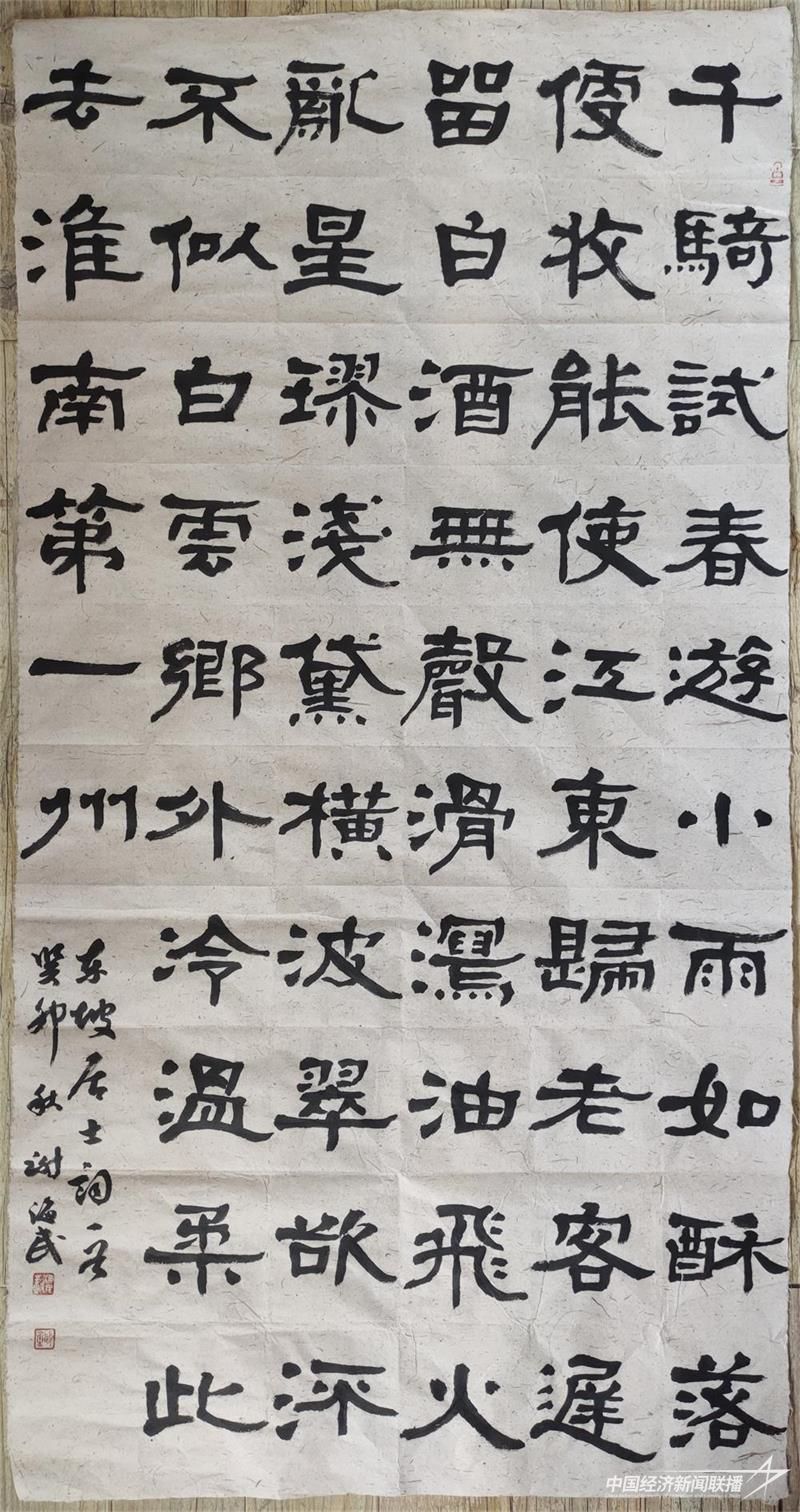 千騎試春遊小雨如酥落
便收能使江東歸老客遲
留白酒無聲滑瀉油飛火
亂星璆淺黛橫波翠欲流
不似白雲鄉外冷溫柔此
去淮南第一州
东坡居士词一首
癸卯秋谢海民
中国经济新闻联播